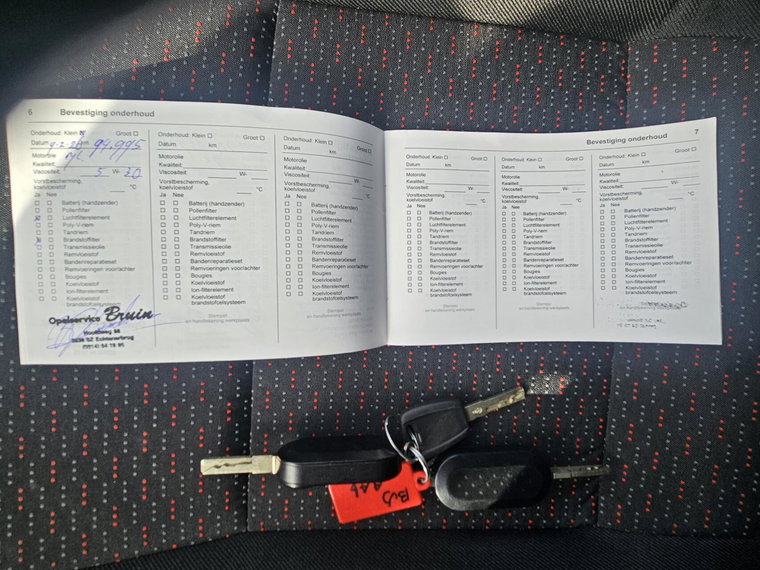 6 Bevestiging onderhoud
Onderhoud: Klein ☒ Groot ☐
Datum km 99.995
Motorolie
Kwaliteit:
Viscositeit: 5 W- 30
Vorstbescherming,
koelvloeistof °C
Ja Nee
Batterij (handzender)
Pollenfilter
Luchtfilterelement
Poly-V-riem
Tandriem
Brandstoffilter
Transmissieolie
Remvloeistof
Bandenreparatieset
Remvoeringen voor/achter
Bougies
Koelvloeistof
Ion-filterelement
Koelvloeistof
brandstofcelsysteem
Opelservice Bruin
Hoofdweg
Echtenerbrug
(0514) 54 18 95
Onderhoud: Klein ☐ Groot ☐
Datum km
Motorolie
Kwaliteit:
Viscositeit: W-
Vorstbescherming,
koelvloeistof °C
Ja Nee
Batterij (handzender)
Pollenfilter
Luchtfilterelement
Poly-V-riem
Tandriem
Brandstoffilter
Transmissieolie
Remvloeistof
Bandenreparatieset
Remvoeringen voor/achter
Bougies
Koelvloeistof
Ion-filterelement
Koelvloeistof
brandstofcelsysteem
Stempel
en handtekening werkplaats
Onderhoud: Klein ☐ Groot ☐
Datum km
Motorolie
Kwaliteit:
Viscositeit: W-
Vorstbescherming,
koelvloeistof °C
Ja Nee
Batterij (handzender)
Pollenfilter
Luchtfilterelement
Poly-V-riem
Tandriem
Brandstoffilter
Transmissieolie
Remvloeistof
Bandenreparatieset
Remvoeringen voor/achter
Bougies
Koelvloeistof
Ion-filterelement
Koelvloeistof
brandstofcelsysteem
Stempel
en handtekening werkplaats
Bevestiging onderhoud 7
Onderhoud: Klein ☐ Groot ☐
Datum km
Motorolie
Kwaliteit:
Viscositeit: W-
Vorstbescherming,
koelvloeistof °C
Ja Nee
Batterij (handzender)
Pollenfilter
Luchtfilterelement
Poly-V-riem
Tandriem
Brandstoffilter
Transmissieolie
Remvloeistof
Bandenreparatieset
Remvoeringen voor/achter
Bougies
Koelvloeistof
Ion-filterelement
Koelvloeistof
brandstofcelsysteem
Stempel
en handtekening werkplaats
Onderhoud: Klein ☐ Groot ☐
Datum km
Motorolie
Kwaliteit:
Viscositeit: W-
Vorstbescherming,
koelvloeistof °C
Ja Nee
Batterij (handzender)
Pollenfilter
Luchtfilterelement
Poly-V-riem
Tandriem
Brandstoffilter
Transmissieolie
Remvloeistof
Bandenreparatieset
Remvoeringen voor/achter
Bougies
Koelvloeistof
Ion-filterelement
Koelvloeistof
brandstofcelsysteem
Stempel
en handtekening werkplaats
Onderhoud: Klein ☐ Groot ☐
Datum km
Motorolie
Kwaliteit:
Viscositeit: W-
Vorstbescherming,
koelvloeistof °C
Ja Nee
Batterij (handzender)
Pollenfilter
Luchtfilterelement
Poly-V-riem
Tandriem
Brandstoffilter
Transmissieolie
Remvloeistof
Bandenreparatieset
Remvoeringen voor/achter
Bougies
Koelvloeistof
Ion-filterelement
Koelvloeistof
brandstofcelsysteem
Stempel
en handtekening werkplaats
Bus